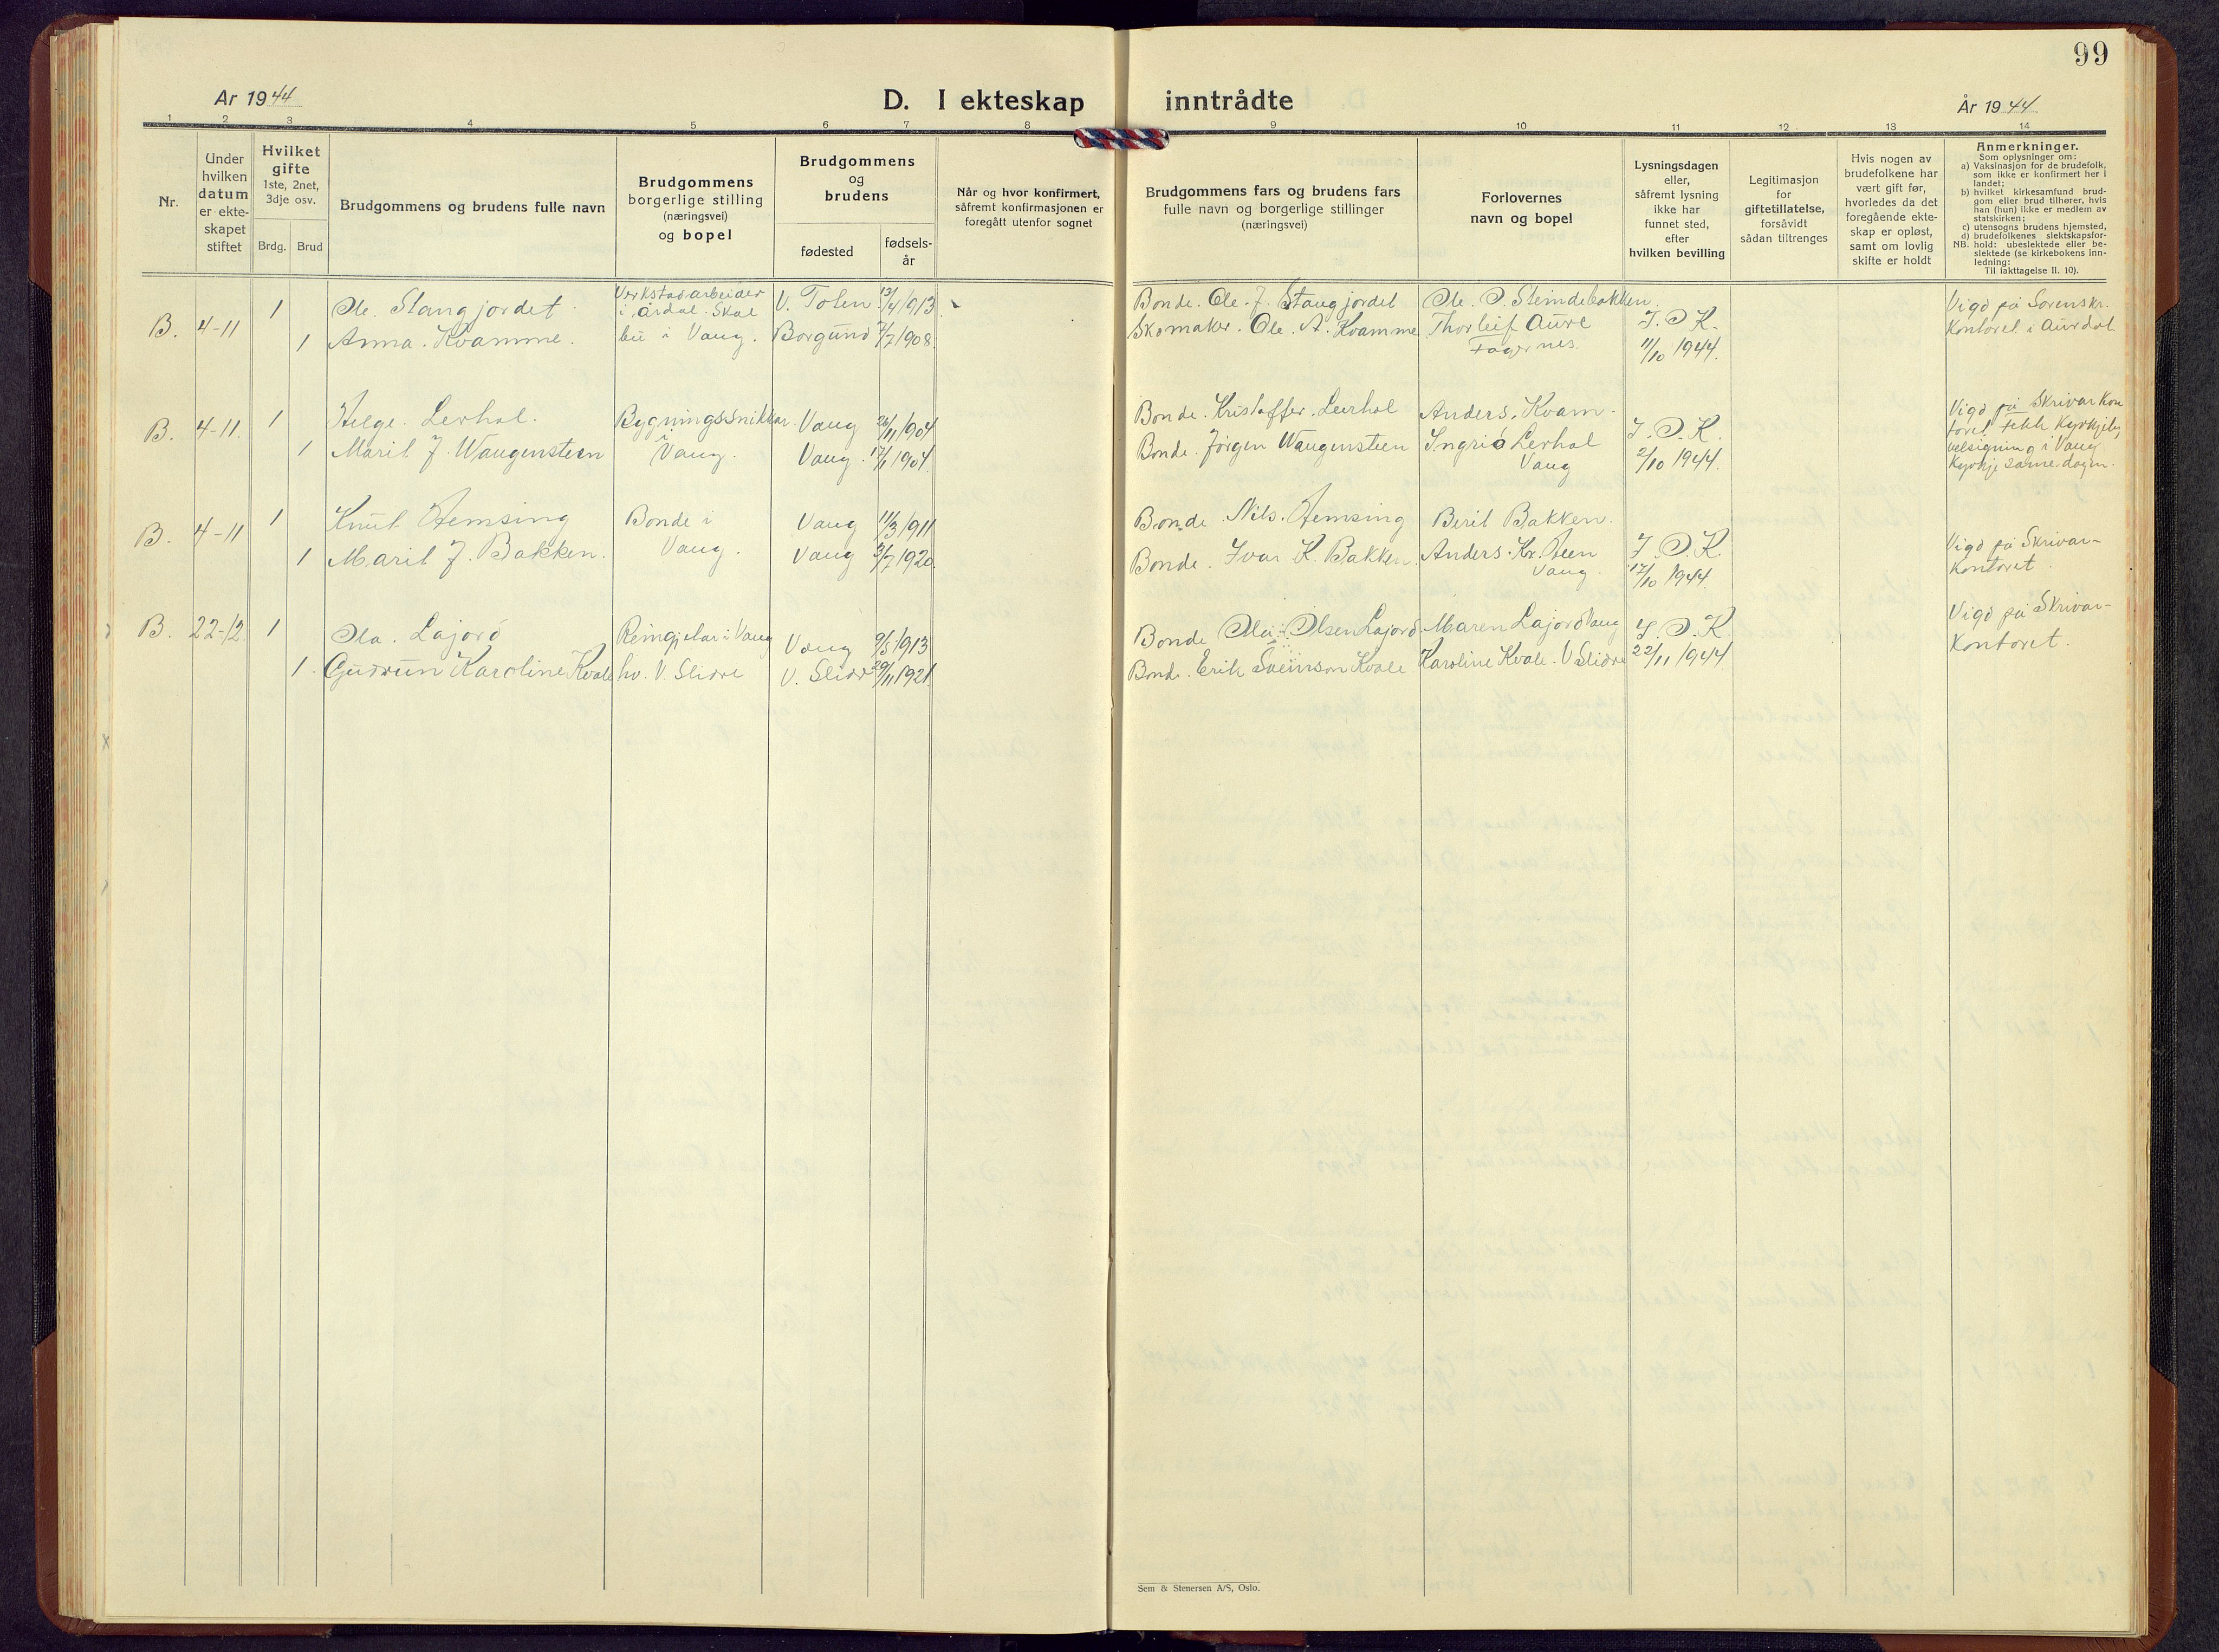 99
År 1944
D. I ekteskap inntrådte
År 1944
1 2 3 4 5 6 7 8 9 10 11 12 13 14
Nr.
Under
hvilken
datum
er ekte-
skapet
stiftet
Hvilket
gifte
1ste, 2net,
3dje osv.
Brdg. Brud
Brudgommens og brudens fulle navn
Brudgommens
borgerlige stilling
(næringsvei)
og bopel
Brudgommens
og
brudens
fødested
fødsels-
år
Når og hvor konfirmert,
såfremt konfirmasjonen er
foregått utenfor sognet
Brudgommens fars og brudens fars
fulle navn og borgerlige stillinger
(næringsvei)
Forlovernes
navn og bopel
Lysningsdagen
eller,
såfremt lysning
ikke har
funnet sted,
efter
hvilken bevilling
Legitimasjon
for
giftetillatelse,
forsåvidt
sådan tiltrenges
Hvis nogen av
brudefolkene har
vært gift før,
hvorledes da det
foregående ekte-
skap er opløst,
samt om lovlig
skifte er holdt
Anmerkninger.
Som oplysninger om:
a) Vaksinasjon for de brudefolk,
som ikke er konfirmert her i
landet;
b) hvilket kirkesamfund brud-
gom eller brud tilhører, hvis
han (hun) ikke er medlem av
statskirken;
c) utensogns brudens hjemsted,
d) brudefolkenes slektskapsfor-
NB. hold: ubeslektede eller be-
slektede (se kirkebokens inn-
ledning:
Til iakttagelse II. 10).
B. 4-11 1 Ole. Stangjordet
Verkstadarbeider
i Årdal. Skal
V. Toten 13/4 1913
1 Anna. Kvamme.
bu i Vang.
Borgund 7/7 1908
Bonde. Ole. J. Stangjordet
Skomaker. Ole. A. Kvamme
Ole. O. Steindebakken.
Thorleif Aure
Fagernes.
J. O. K.
11/10 1944.
Vigd på Sorenskr.
Kontoret i Aurdal
B. 4-11. 1 Helge. Lerhol.
Bygningssnikkar
i
Vang.
Vang 26/11 1904
1 Marit J. Wangensteen
Vang. 17/1 1904.
Bonde. Kristoffer. Leerhol
Bonde. Jørgen Wangensteen
Anders. Kvam.
Ingrid Lerhol
Vang
J. O. K.
2/10 1944.
Vigd på Skrivarkon
toret. Fekk Kyrkjeleg
velsigning i Vang
Kyrkje same dagen.
B. 4-11 1 Knut Hemsing
Bonde i
Vang.
Vang 11/3 1911
1 Marit J. Bakken.
Vang 3/7 1920.
Bonde. Nils. Hemsing
Bonde. Ivar K. Bakken.
Berit Bakken.
Anders. Kr. Steen
Vang.
J. O. K.
17/10 1944.
Vigd på Skrivar-
Kontoret.
B. 22-12. 1 Ola. Lajord
Reingjetar i Vang
Vang 9/5 1913
1. Gudrun Karoline Kvale
hv. V. Slidre
V. Slidre 29/11 1921.
Bonde Ola Olsen Lajord
Bond. Erik Sveinson Kvale
Maren Lajord Vang
Karoline Kvale. V Slidre
J. O. K.
22/11 1944
Vigd på Skrivar-
Kontoret.
Sem & Stenersen A/S, Oslo.